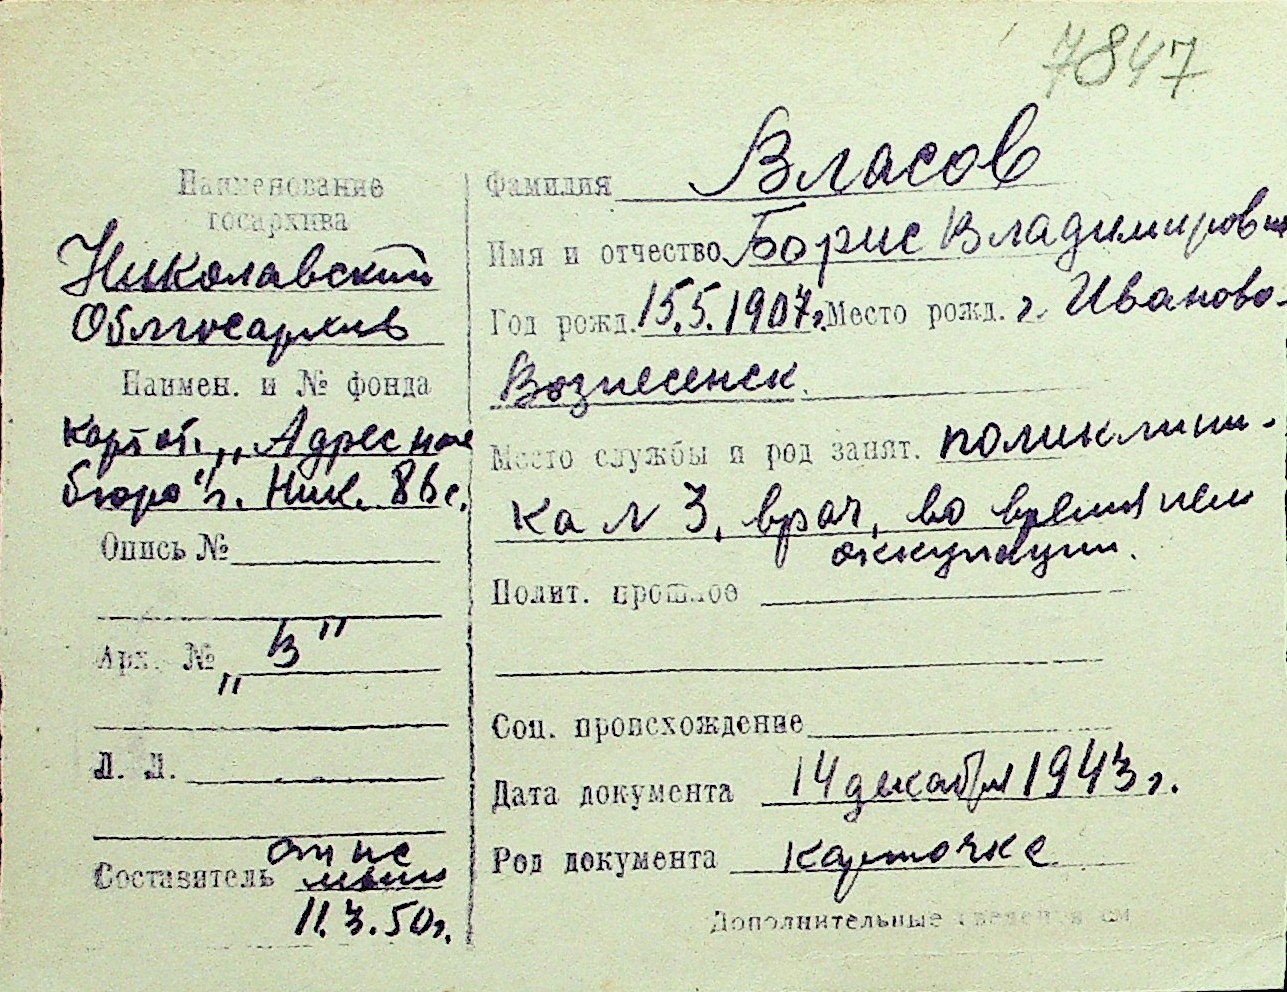 7847
Наименование
госархива
Николавский
Облгосархив
Наимен. и № фонда
карт от. „Адресное
бюро" г. Ник. 86 с.
Опись №
Арх. № „В"
Л. Л.
Составитель
11.3.50г.
Фамилия Власов
Имя и отчество Борис Владимирович
Год рожд. 15.5.1907г. Место рожд. г. Иваново-
Вознесенск.
Место службы и род занят. поликлини-
ка N 3, врач, во время нем
оккупации.
Полит. прошлое
Соц. происхождение
Дата документа 14 декабря 1943 г.
Род документа карточка
Дополнительные сведения см